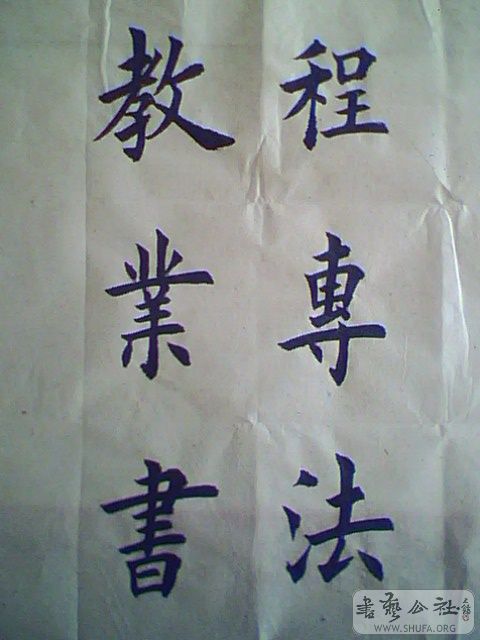 教程
業專
書法
書藝公社
WWW.SHUFA.ORG